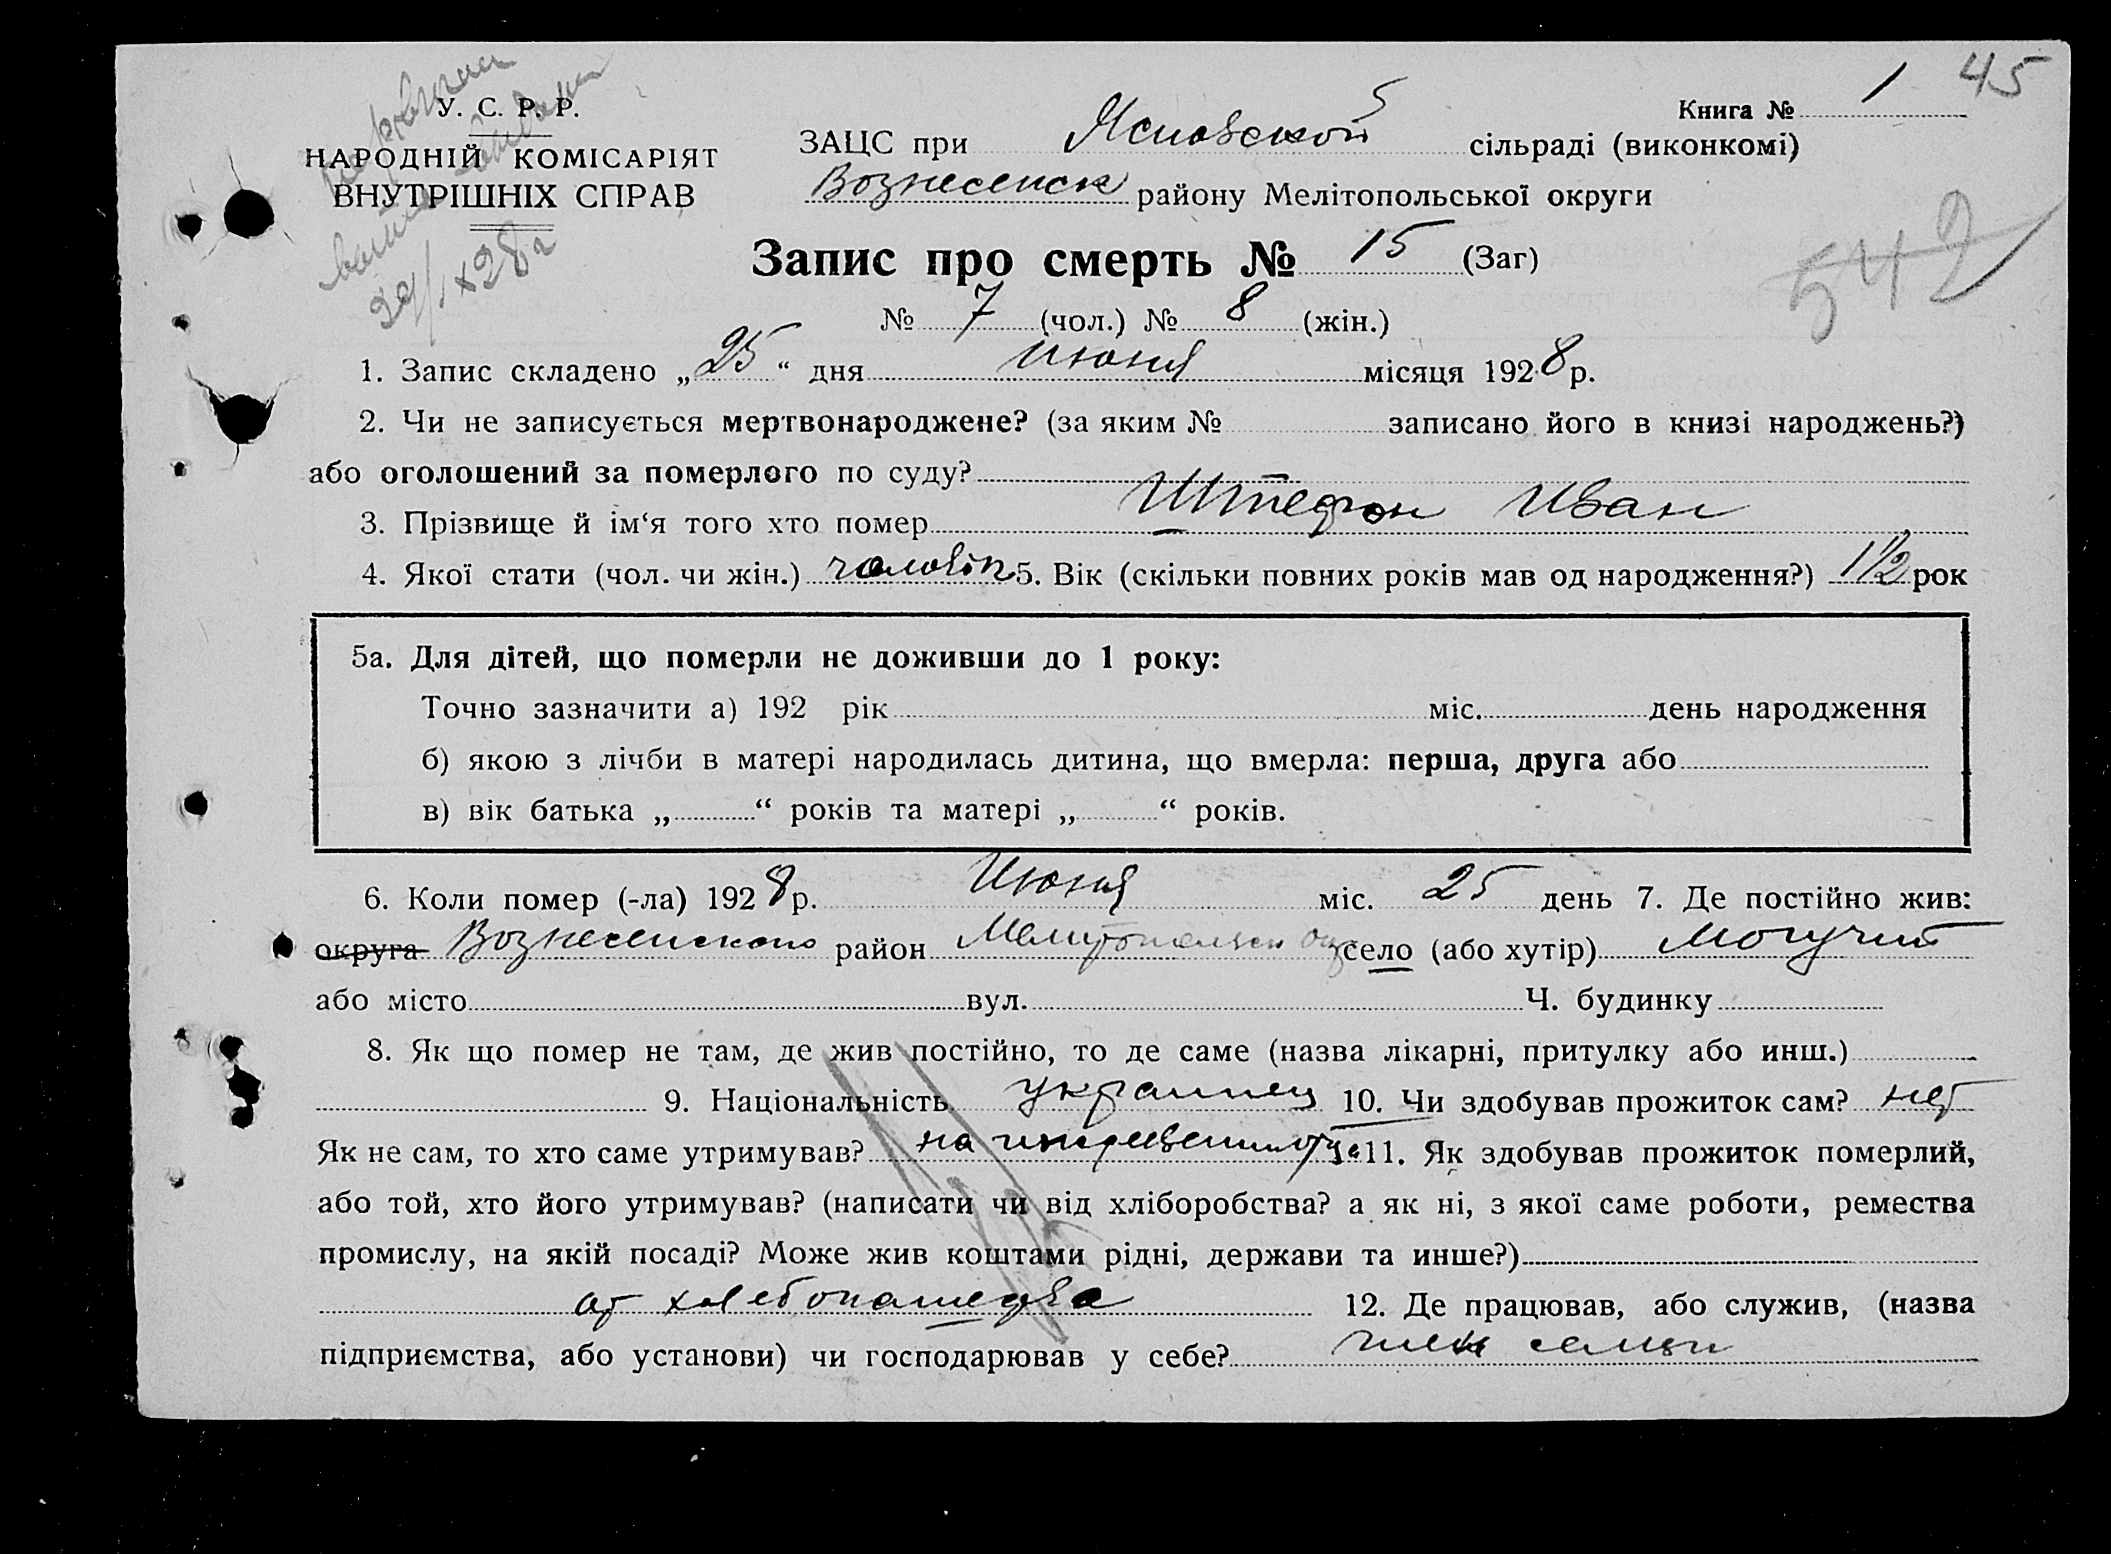 45
У. С. Р. Р.
НАРОДНІЙ КОМІСАРІЯТ
ВНУТРІШНІХ СПРАВ
29/IX 28 г
Книга № 1
ЗАЦС при Ясновской сільраді (виконкомі)
Вознесенск району Мелітопольської округи
542
Запис про смерть № 15 (Заг)
№ 7 (чол.) № 8 (жін.)
1. Запис складено „25“ дня июня місяця 1928 р.
2. Чи не записується мертвонароджене? (за яким № записано його в книзі народжень?)
або оголошений за померлого по суду?
3. Прізвище й ім‘я того хто помер Штефон Иван
4. Якої стати (чол. чи жін.) чоловік 5. Вік (скільки повних років мав од народження?) 1 1/2 рок
5а. Для дітей, що померли не доживши до 1 року:
Точно зазначити а) 192 рік міс. день народження
б) якою з лічби в матері народилась дитина, що вмерла: перша, друга або
в) вік батька „ “ років та матері „ “ років.
6. Коли помер (-ла) 1928 р. Июня міс. 25 день 7. Де постійно жив:
округа Вознесенского район Мелитопольск ок село (або хутір) Могучий
або місто вул. Ч. будинку
8. Як що помер не там, де жив постійно, то де саме (назва лікарні, притулку або инш.)
9. Національність украинец 10. Чи здобував прожиток сам? нет
Як не сам, то хто саме утримував? на иждевении отца 11. Як здобував прожиток померлий,
або той, хто його утримував? (написати чи від хліборобства? а як ні, з якої саме роботи, ремества
промислу, на якій посаді? Може жив коштами рідні, держави та инше?)
от хлебопашества 12. Де працював, або служив, (назва
підприємства, або установи) чи господарював у себе? член семьи